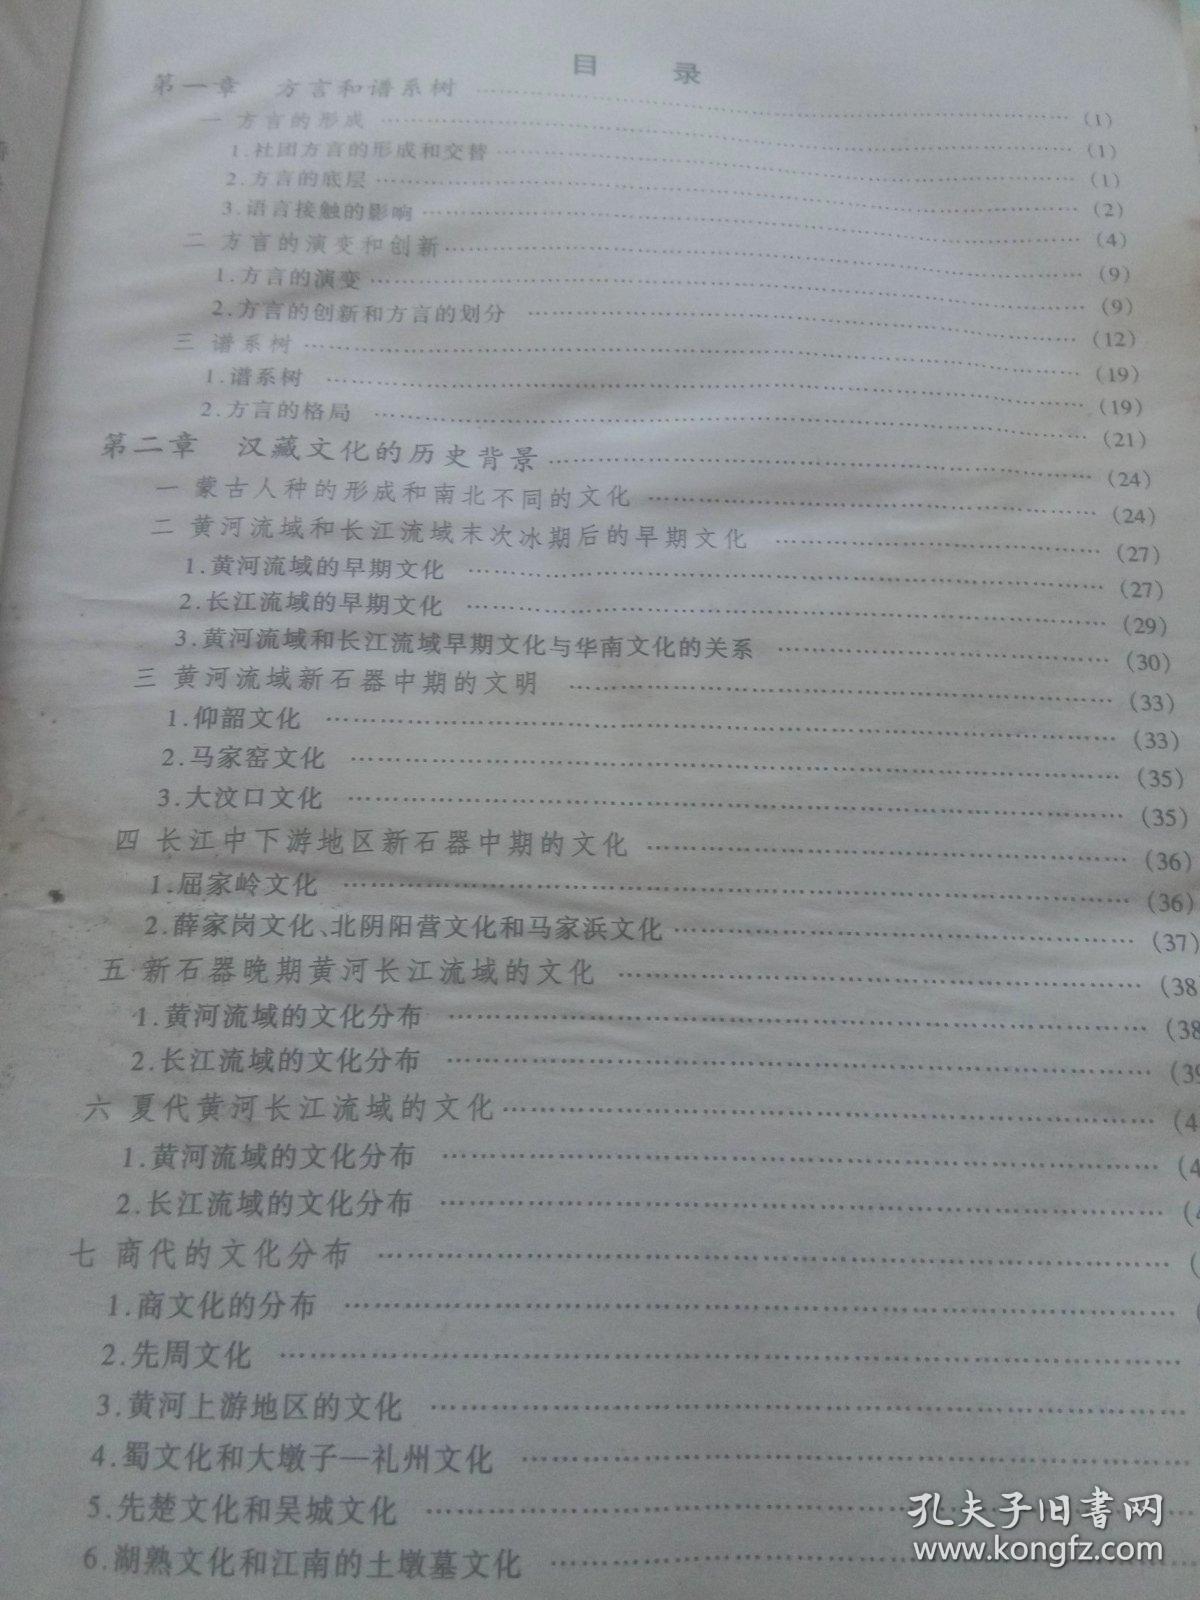 目 录
第一章 方言和谱系树 ……………… (1)
一 方言的形成 ……………… (1)
1.社团方言的形成和交替 ……………… (1)
2.方言的底层 ……………… (2)
3.语言接触的影响 ……………… (4)
二 方言的演变和创新 ……………… (9)
1.方言的演变 ……………… (9)
2.方言的创新和方言的划分 ……………… (12)
三 谱系树 ……………… (19)
1.谱系树 ……………… (19)
2.方言的格局 ……………… (21)
第二章 汉藏文化的历史背景 ……………… (24)
一 蒙古人种的形成和南北不同的文化 ……………… (24)
二 黄河流域和长江流域末次冰期后的早期文化 ……………… (27)
1.黄河流域的早期文化 ……………… (27)
2.长江流域的早期文化 ……………… (29)
3.黄河流域和长江流域早期文化与华南文化的关系 ……………… (30)
三 黄河流域新石器中期的文明 ……………… (33)
1.仰韶文化 ……………… (33)
2.马家窑文化 ……………… (35)
3.大汶口文化 ……………… (35)
四 长江中下游地区新石器中期的文化 ……………… (36)
1.屈家岭文化 ……………… (36)
2.薛家岗文化、北阴阳营文化和马家浜文化 ……………… (37)
五 新石器晚期黄河长江流域的文化 ……………… (38
1.黄河流域的文化分布 ……………… (38
2.长江流域的文化分布 ……………… (39
六 夏代黄河长江流域的文化 ……………… (4
1.黄河流域的文化分布 ……………… (4
2.长江流域的文化分布 ……………… (4
七 商代的文化分布 ……………… (
1.商文化的分布 ………………
2.先周文化 ………………
3.黄河上游地区的文化 ………………
4.蜀文化和大墩子—礼州文化 ………………
5.先楚文化和吴城文化 ………………
6.湖熟文化和江南的土墩墓文化 ………………
孔夫子旧书网
www.kongfz.com